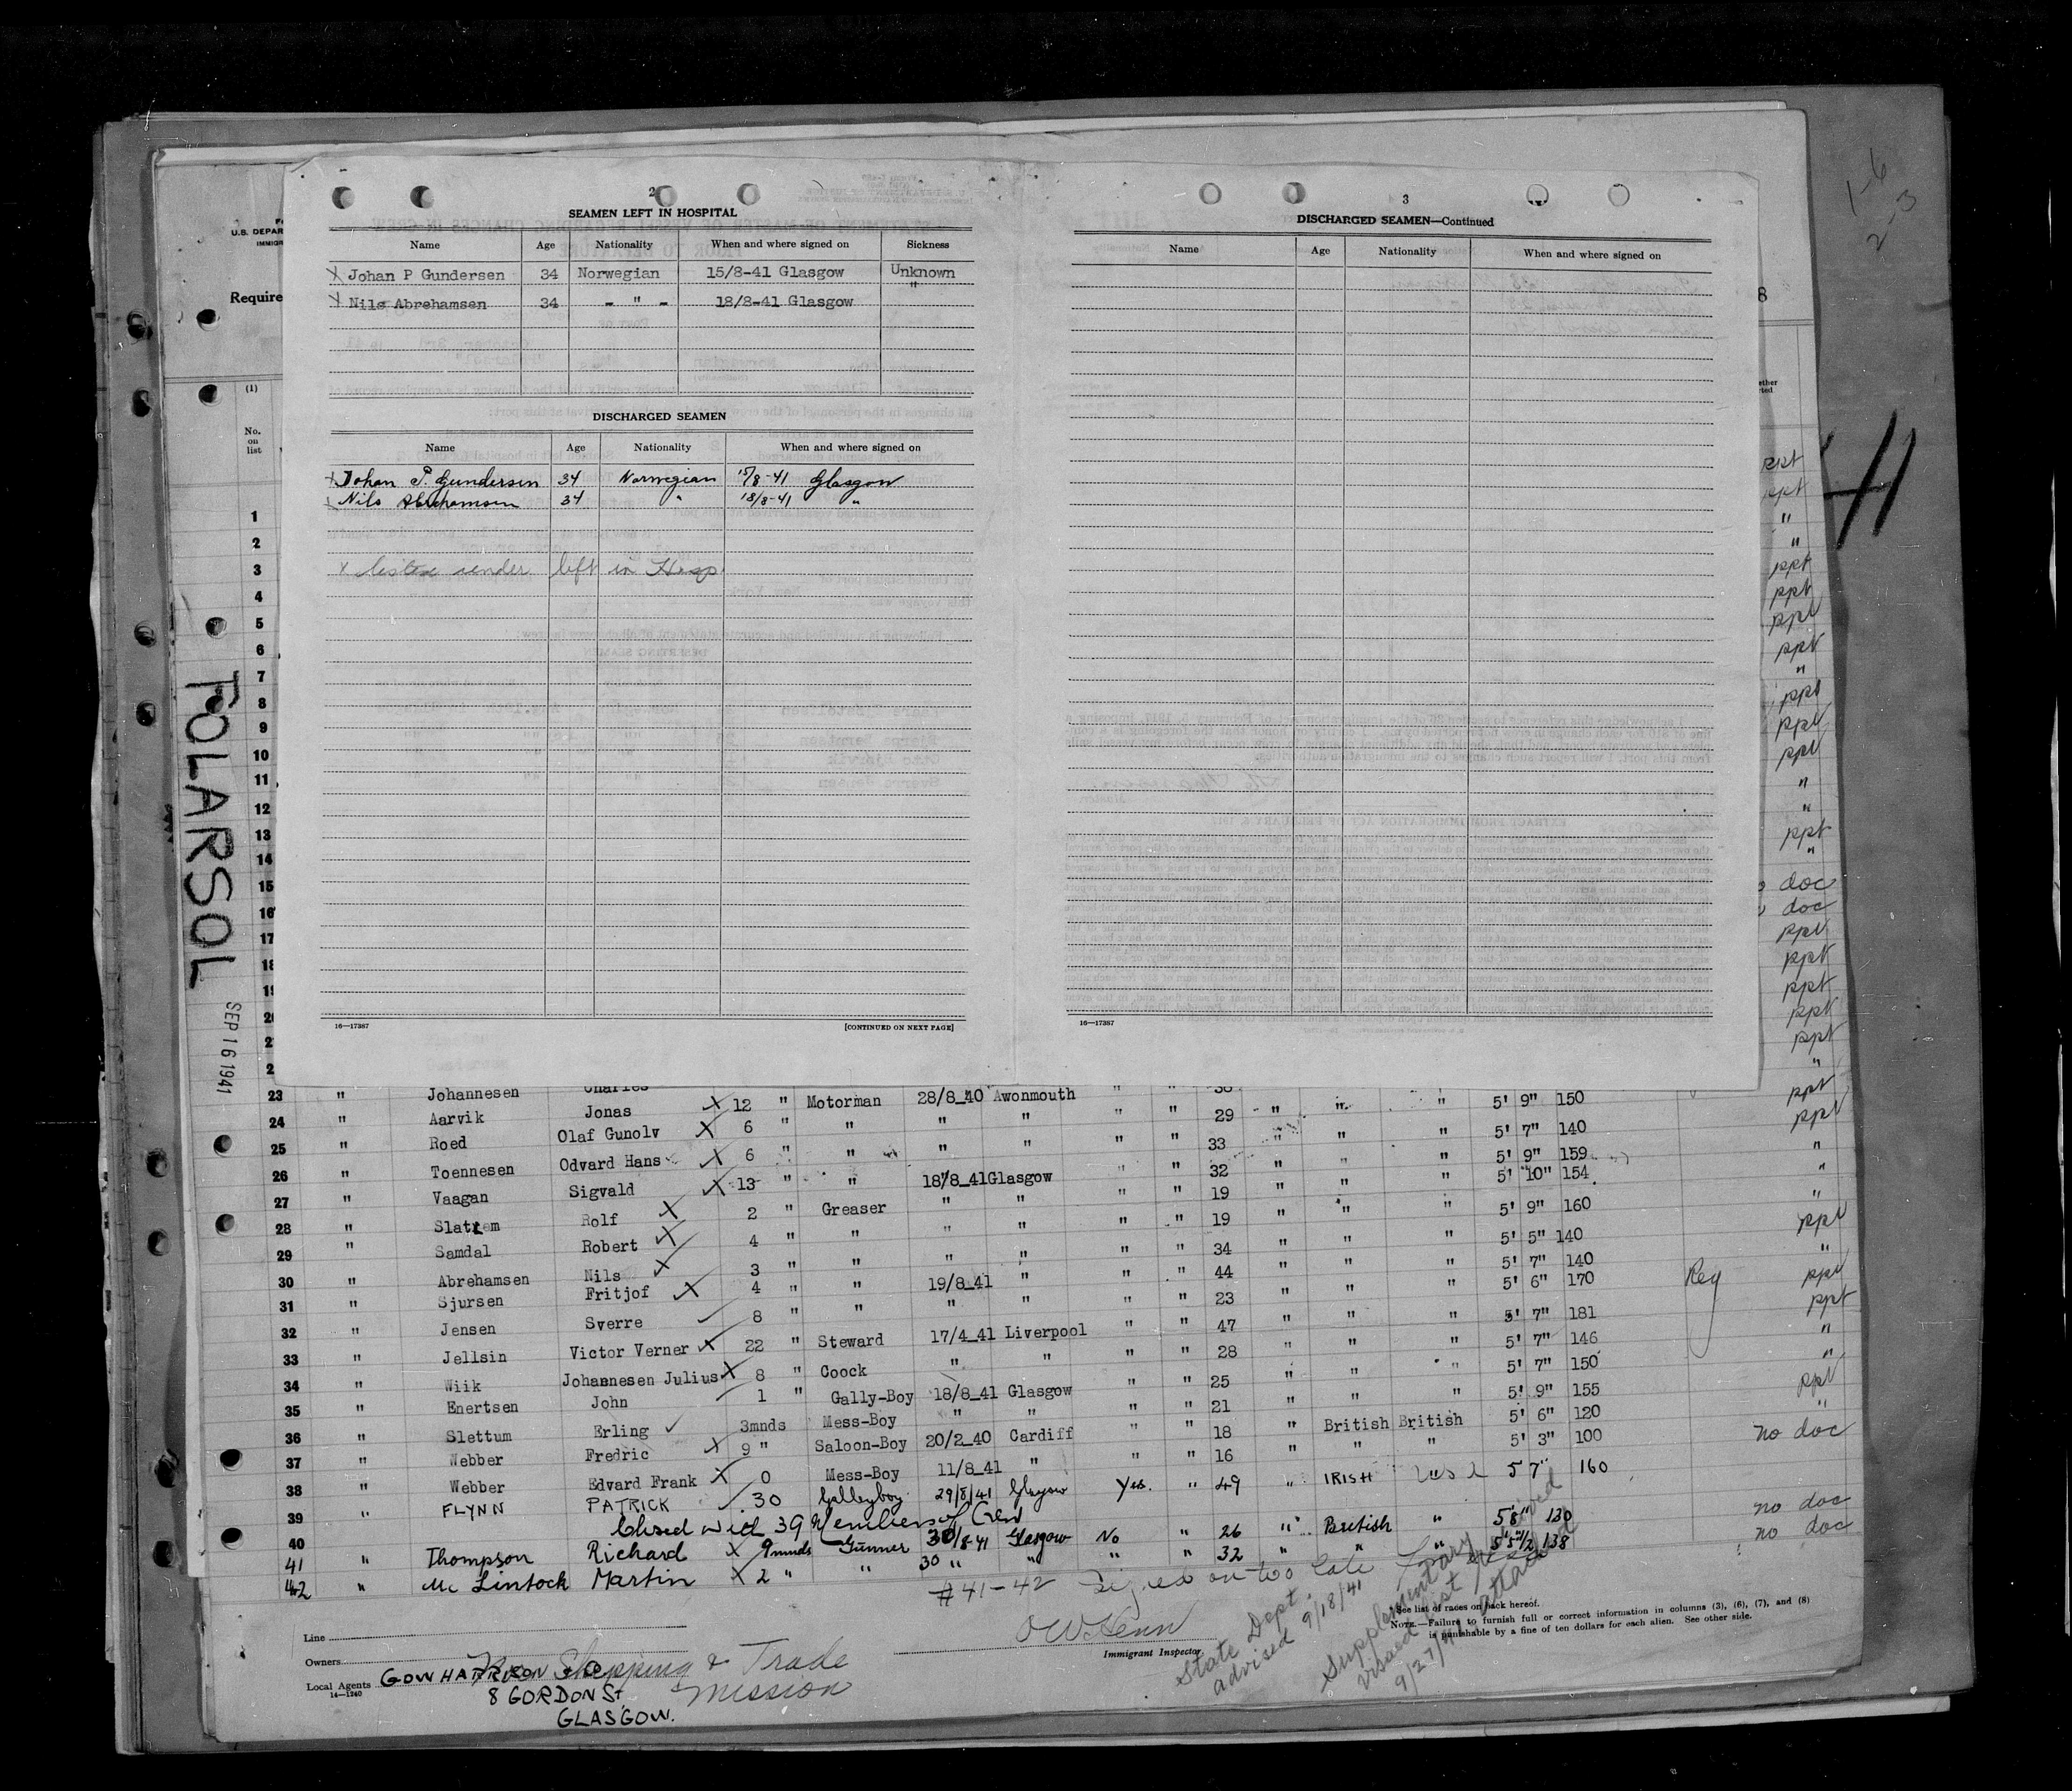 2
SEAMEN LEFT IN HOSPITAL
Name Age Nationality When and where signed on Sickness
X Johan P Gundersen 34 Norwegian 15/8-41 Glasgow Unknown
X Nils Abrehamsen 34 - " - 18/8-41 Glasgow "
DISCHARGED SEAMEN
Name Age Nationality When and where signed on
Johan P. Gundersen 34 Norwegian 15/8-41 Glasgow
Nils Abrehamsen 34 " 18/8-41 "
x listed under left in Hosp.
16—17387 [CONTINUED ON NEXT PAGE]
3
DISCHARGED SEAMEN—Continued
Name Age Nationality When and where signed on
16—17387
1-6
2-3
U.S. DEPAR
IMMIGR
Require
8
(1)
No.
on
list
1
2
3
4
5
6
7
8
9
10
11
12
13
14
15
16
17
POLARSOL
SEP 16 1941
ppt
ppt
"
"
ppt
ppt
ppt
ppt
"
ppt
ppt
ppt
"
"
ppt
"
doc
doc
ppt
ppt
ppt
ppt
ppt
"
23 " Johannesen Charles X 12 " Motorman 28/8_40 Awonmouth " " 30 " " " 5' 9" 150 ppt
24 " Aarvik Jonas X 6 " " " " " " 29 " " " 5' 7" 140 ppt
25 " Roed Olaf Gunolv X 6 " " " " " " 33 " " " 5' 9" 159 "
26 " Toennesen Odvard Hans X 13 " " 18/8_41 Glasgow " " 32 " " " 5' 10" 154 "
27 " Vaagan Sigvald 2 " Greaser " " " " 19 " " " 5' 9" 160 "
28 " Slattem Rolf X 4 " " " " " " 19 " " " 5' 5" 140 ppt
29 " Samdal Robert X 3 " " " " " " 34 " " " 5' 7" 140 "
30 " Abrehamsen Nils X 4 " " 19/8_41 " " " 44 " " " 5' 6" 170 Rey ppt
31 " Sjursen Fritjof X 8 " " " " " " 23 " " " 5' 7" 181 ppt
32 " Jensen Sverre 22 " Steward 17/4_41 Liverpool " " 47 " " " 5' 7" 146 "
33 " Jellsin Victor Verner X 8 " Coock " " " " 28 " " " 5' 7" 150 "
34 " Wiik Johannesen Julius X 1 " Gally-Boy 18/8_41 Glasgow " " 25 " " " 5' 9" 155 ppt
35 " Enertsen John 3mnds Mess-Boy " " " " 21 " British British 5' 6" 120 "
36 " Slettum Erling 9 " Saloon-Boy 20/2_40 Cardiff " " 18 " " " 5' 3" 100 no doc
37 " Webber Fredric X 0 Mess-Boy 11/8_41 " " " 16 "
38 " Webber Edvard Frank X
39 " FLYNN PATRICK 30 Galleyboy 29/8/41 Glasgow Yes. " 49 " IRISH 5 7" 160
Closed with 39 Members of Crew
40
41 " Thompson Richard X 9mnds Gunner 30/8-41 Glasgow No " 26 " British " 5'8" 130 no doc
42 " Mc Lintock Martin X 2 " " 30 " " " " 32 " " " 5'5½" 138 no doc
#41-42 Signed on too late
Line
Owners
Local Agents GOW HARRISON & Co
Nor. Shipping & Trade Mission
14—1240
8 GORDON St.
GLASGOW.
Immigrant Inspector
State Dept.
advised 9/18/41
Supplementary
visaed list received
9/27/41 attached
See list of races on back hereof.
NOTE.—Failure to furnish full or correct information in columns (3), (6), (7), and (8)
is punishable by a fine of ten dollars for each alien. See other side.